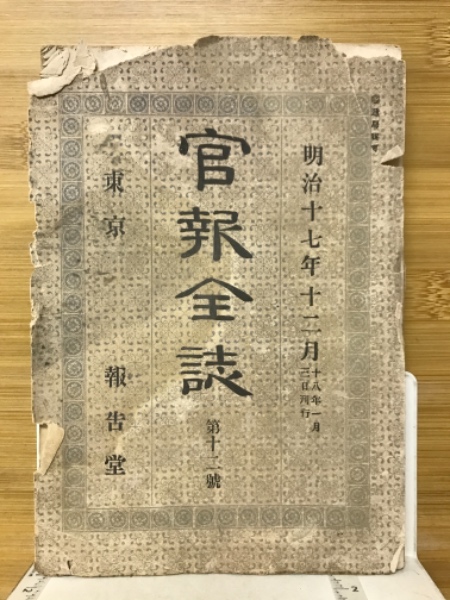 明治十七年十二月
十八年一月
三日刊行
官報全誌
第十二號
東京
報告堂